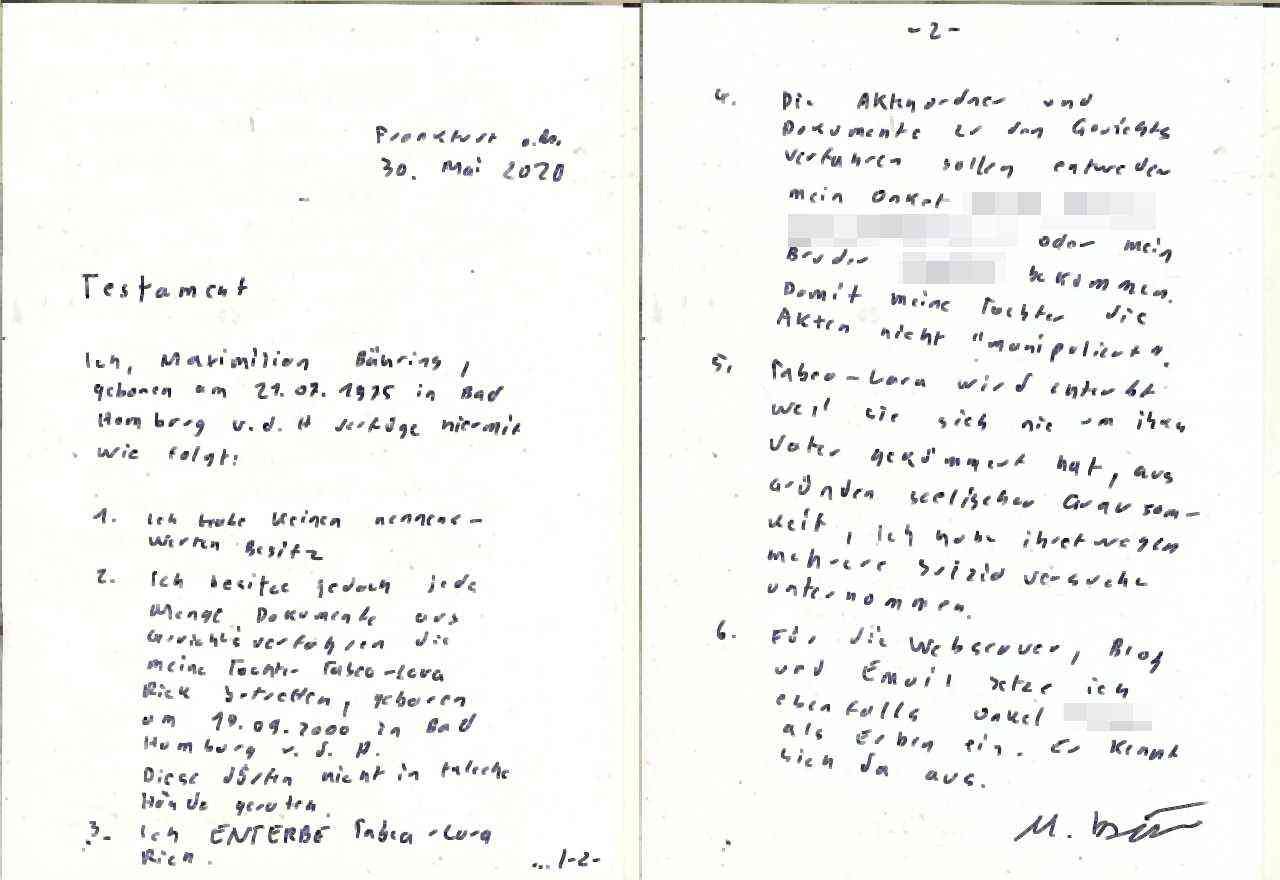 Frankfurt a.M.
30. Mai 2020
Testament
Ich, Maximilian Bähring,
geboren am 21.07.1975 in Bad
Homburg v.d.H verfüge hiermit
wie folgt:
1. Ich habe keinen nennens-
werten Besitz
2. Ich besitze jedoch jede
Menge Dokumente aus
Gerichtsverfahren die
meine Tochter Tabea-Lara
Riek betreffen, geboren
am 19.09.2000 in Bad
Homburg v.d.H.
Diese dürfen nicht in falsche
Hände geraten.
3. Ich ENTERBE Tabea-Lara
Riek.
... /-2-
-2-
4. Die Aktenordner und
Dokumente zu den Gerichts
verfahren sollen entweder
mein Onkel
oder mein
Bruder
bekommen.
Damit meine Tochter die
Akten nicht "manipuliert".
5. Tabea-Lara wird enterbt
weil sie sich nie um ihren
Vater gekümmert hat, aus
Gründen seelischer Grausam-
keit, ich habe ihretwegen
mehrere Suizid versuche
unternommen.
6. Für die Webserver, Blog
und Email setze ich
ebenfalls Onkel
als Erben ein. Er kennt
sich da aus.